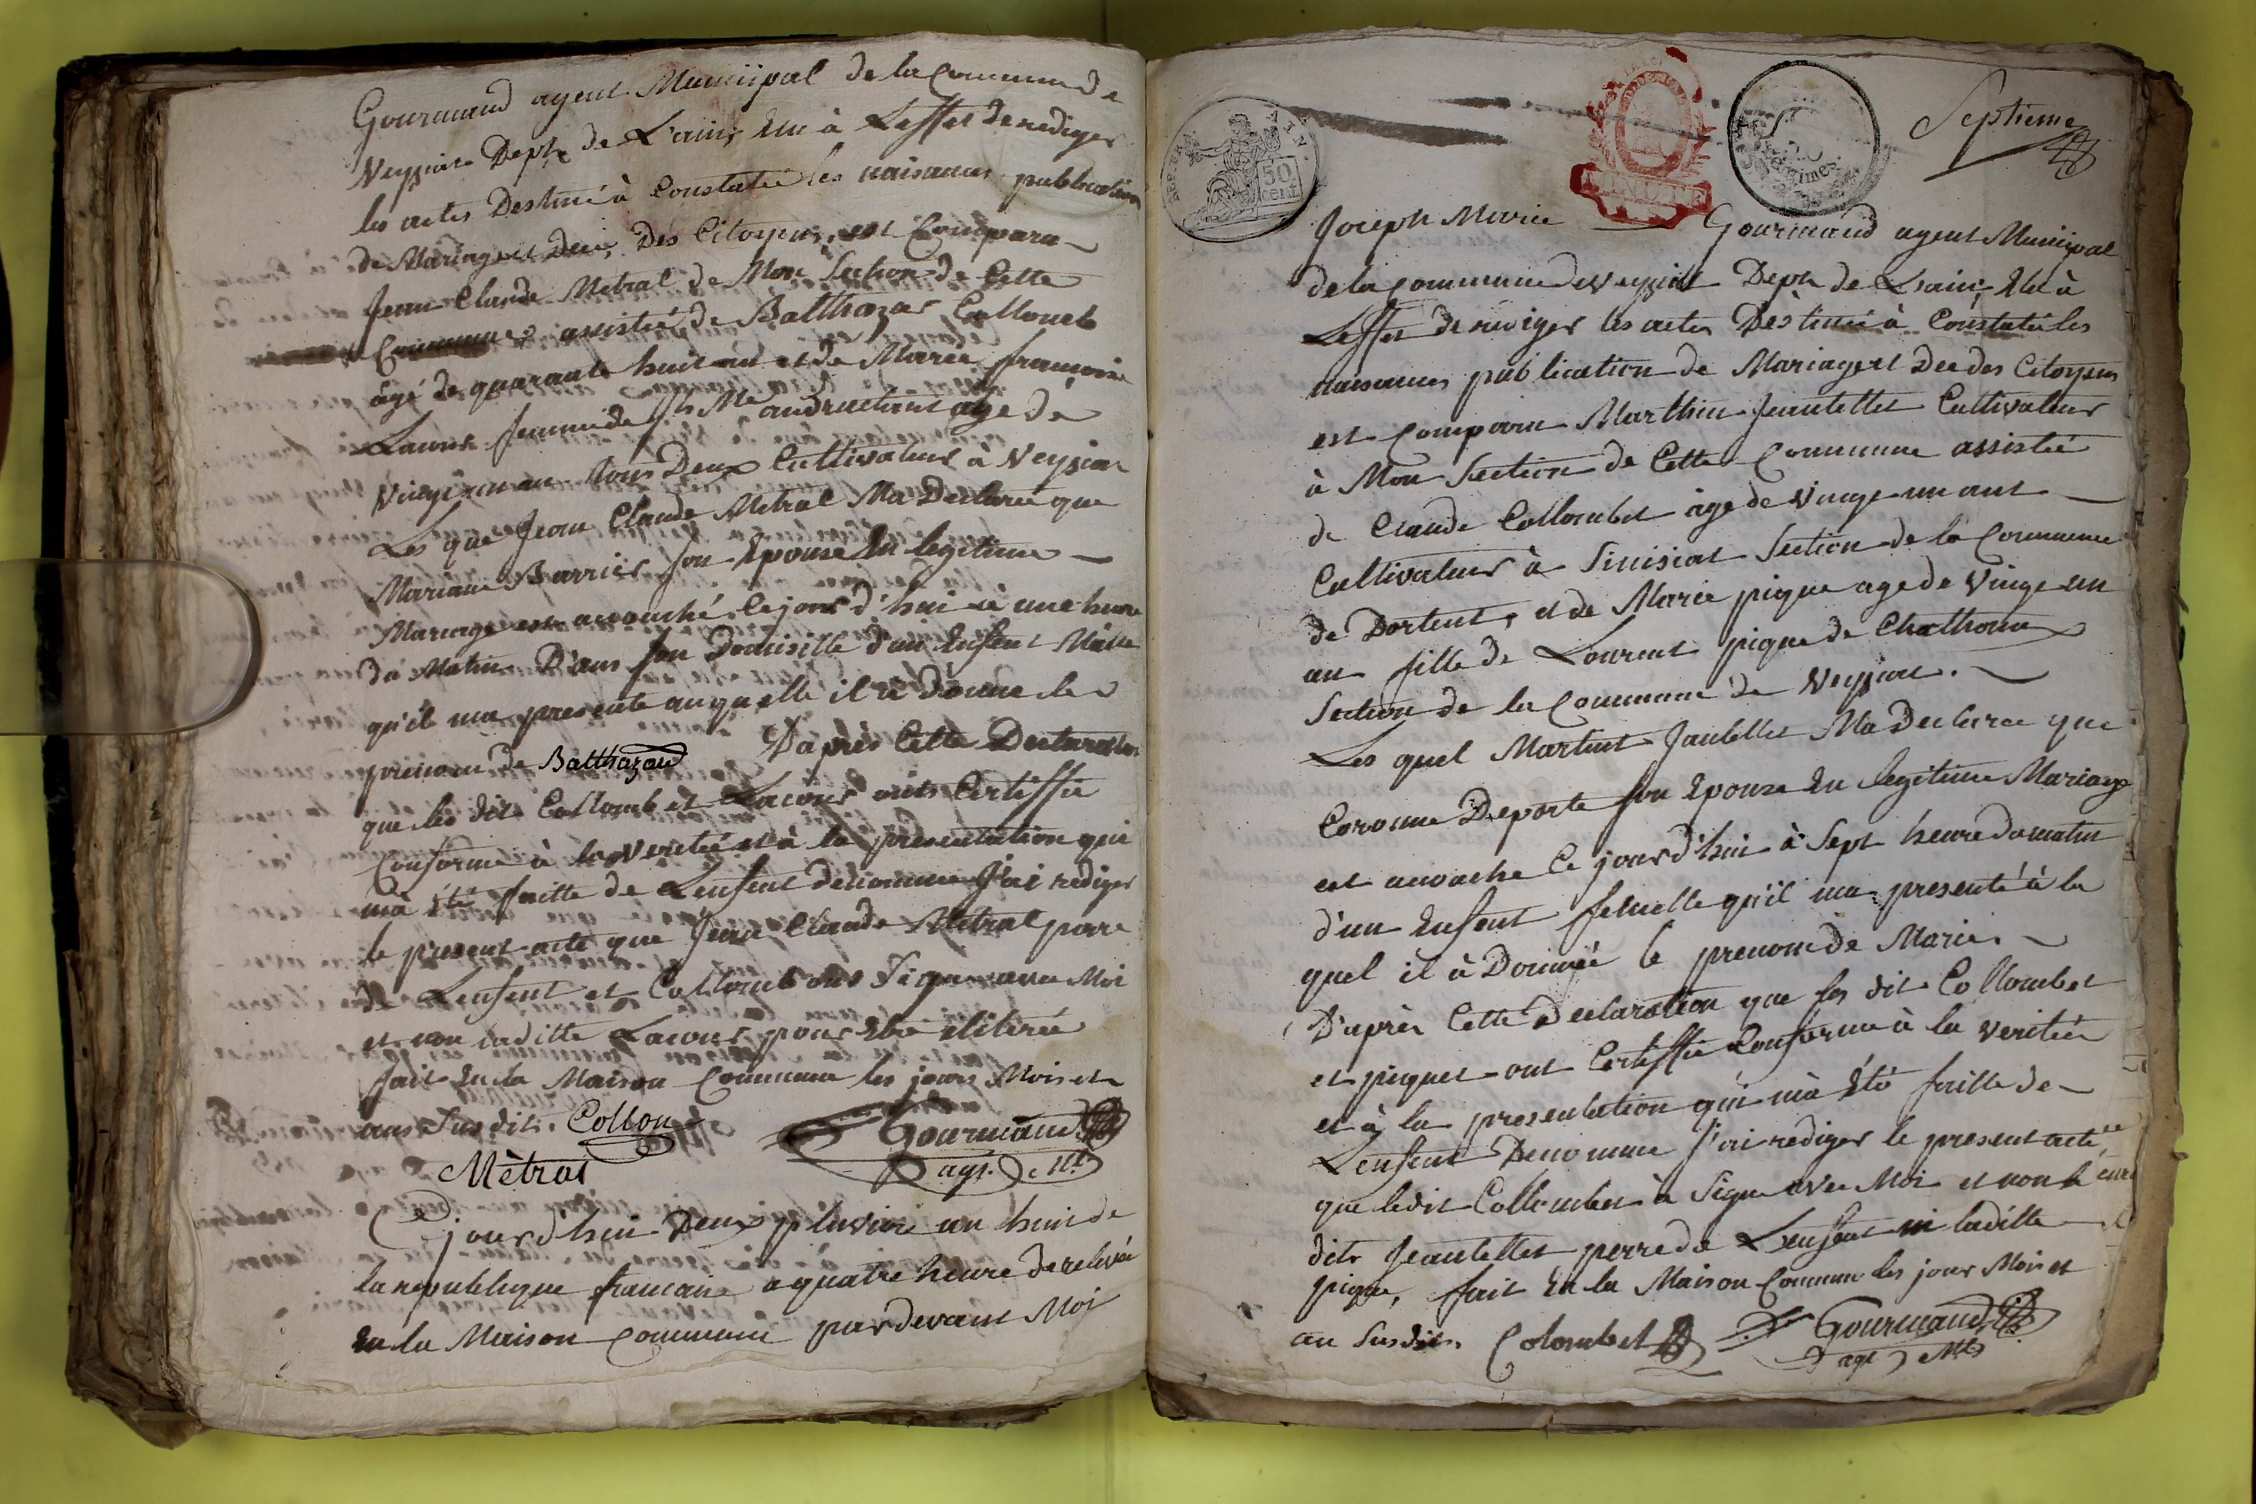 Gourmand agent Municipal de la Commune de
Veyziat Dept de L'ain, Elu à Leffet de rediger
les actes Destiné à Constaté les naisances publication
de Mariage et Dece, Des Citoyens, est Comparu
Jean Claude Metral de Mon Section de Cette
Commune assistée de Balthazar Collomb
âgé de quarante huit ans et de Marie françoise
Lacour femme de age de
Vingt un an tous Deux Cultivateur à Veyziat
Les que Jean Claude Metral Ma Declaré que
Mariane Barrier son Epouse En legitime
Mariage est acouché Cejourd'hui à une heure
du Matin Dans son Domicille d'un Enfent Mâle
qu'il ma presenté au quelle il à donné le
prenom de Balthazard D'apres Cette Declaration
que les dit Collomb et Lacour onts Certiffie
Conforme à la veritée et à la presentation qui
mà été faitte de Lenfent denomme J'ai rediger
le present acte que Jean Claude Metral pere
de Lenfent et Collomb ons Signe avec Moi
et non laditte Lacour pour Etre iliterée
fait En la Maison Commune les jours Mois et
ans Susdit. Collon Gourmand
Mètral agt. Mal
Cejourd'hui Deux pluviose an huit de
la republique francaise a quatre heure de relevée
En la Maison Commune pardevant Moi
50 cent.
Septieme
Joseph Marie Gourmand agent Municipal
de la Commune de Veyziat Dept de L'ain, Elu à
Leffet de rediger les actes Destiné à Constaté les
naisances publication de Mariage et Dece des Citoyens
est Comparu Marthin Jeantellet Cultivateur
à Mon Section de Cette Commune assistée
de Claude Collombet âge de Vingt un ans
Cultivateur à Sinisiat Section de la Commune
de Dortent, et de Marie pique age de Vingt un
an fille de Lourent pique de Chathonna
Section de la Commune de Veyziat.
Les quel Martint Jantellet Ma Declaree que
Coronne Deporte son Epouse En legitime Mariage
est acouche Ce jourd'hui à Sept heure du matin
d'un Enfent femelle qu'il ma presenté à la
quel il à Donnée le prenom de Marie.
D'après Cette Declaration que les dit Collombet
et piquet ont Certiffie Conforme à la veritée
et à la presentation qui mà Eté faitte de
Lenfent Denomme J'ai rediger le present acte
que ledit Collombet à Signe avec Moi et non le
dit Jeantellet perre de Lenfent ni laditte
pique, fait En la Maison Commune les jour Mois et
an Susdit. Colombet Gourmand
agt Mal